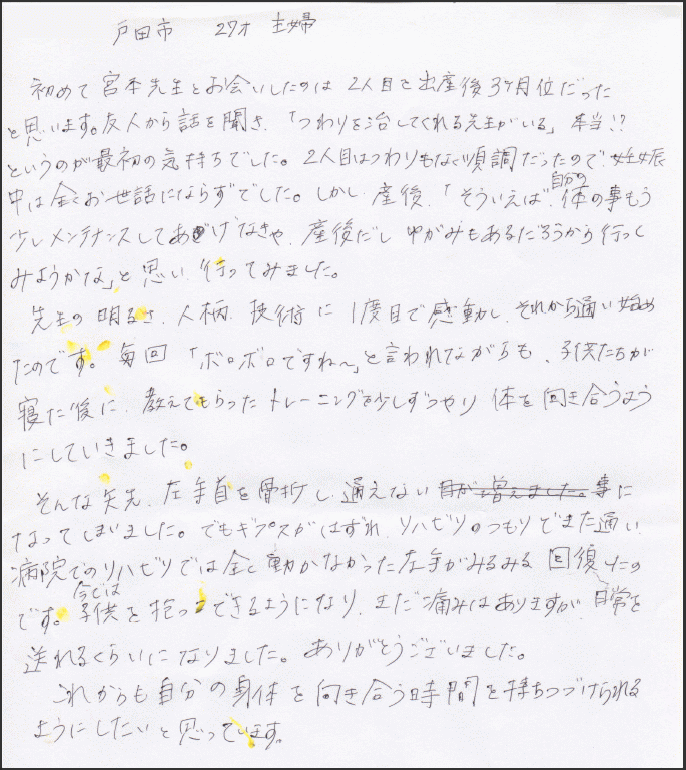 戸田市 27才 主婦
初めて宮本先生とお会いしたのは 2人目を出産後3ヶ月位だった
と思います。友人から話を聞き、「つわりを治してくれる先生がいる」本当!?
というのが最初の気持ちでした。2人目はつわりもなく順調だったので、妊娠
中は全くお世話にならずでした。しかし、産後、「そういえば、自分の体の事もう
少しメンテナンスしてあげなきゃ、産後だし ゆがみもあるだろうから行って
みようかな」と思い、行ってみました。
先生の明るさ、人柄、技術に1度目で感動し、それから通い始め
たのです。毎回「ボロボロですね〜」と言われながらも、子供たちが
寝た後に、教えてもらったトレーニングを少しずつやり 体を向き合うよう
にしていきました。
そんな矢先、左手首を骨折し、通えない 日が増えました。事に
なってしまいました。でもギプスがはずれ、リハビリのつもりでまた通い、
病院でのリハビリでは全く動かなかった左手がみるみる 回復したの
です。今では子供を抱っこできるようになり、まだ痛みはありますが 日常を
送れるくらいになりました。ありがとうございました。
これからも自分の身体を向き合う時間を持ちつづけられる
ようにしたいと思っています。